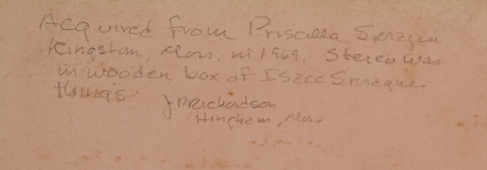 Acquired from Priscilla Sprague
Kingston, Mass, in 1969. Stereo was
in wooden box of Isacc Sprague
things JPRichardson
Hingham, Mass